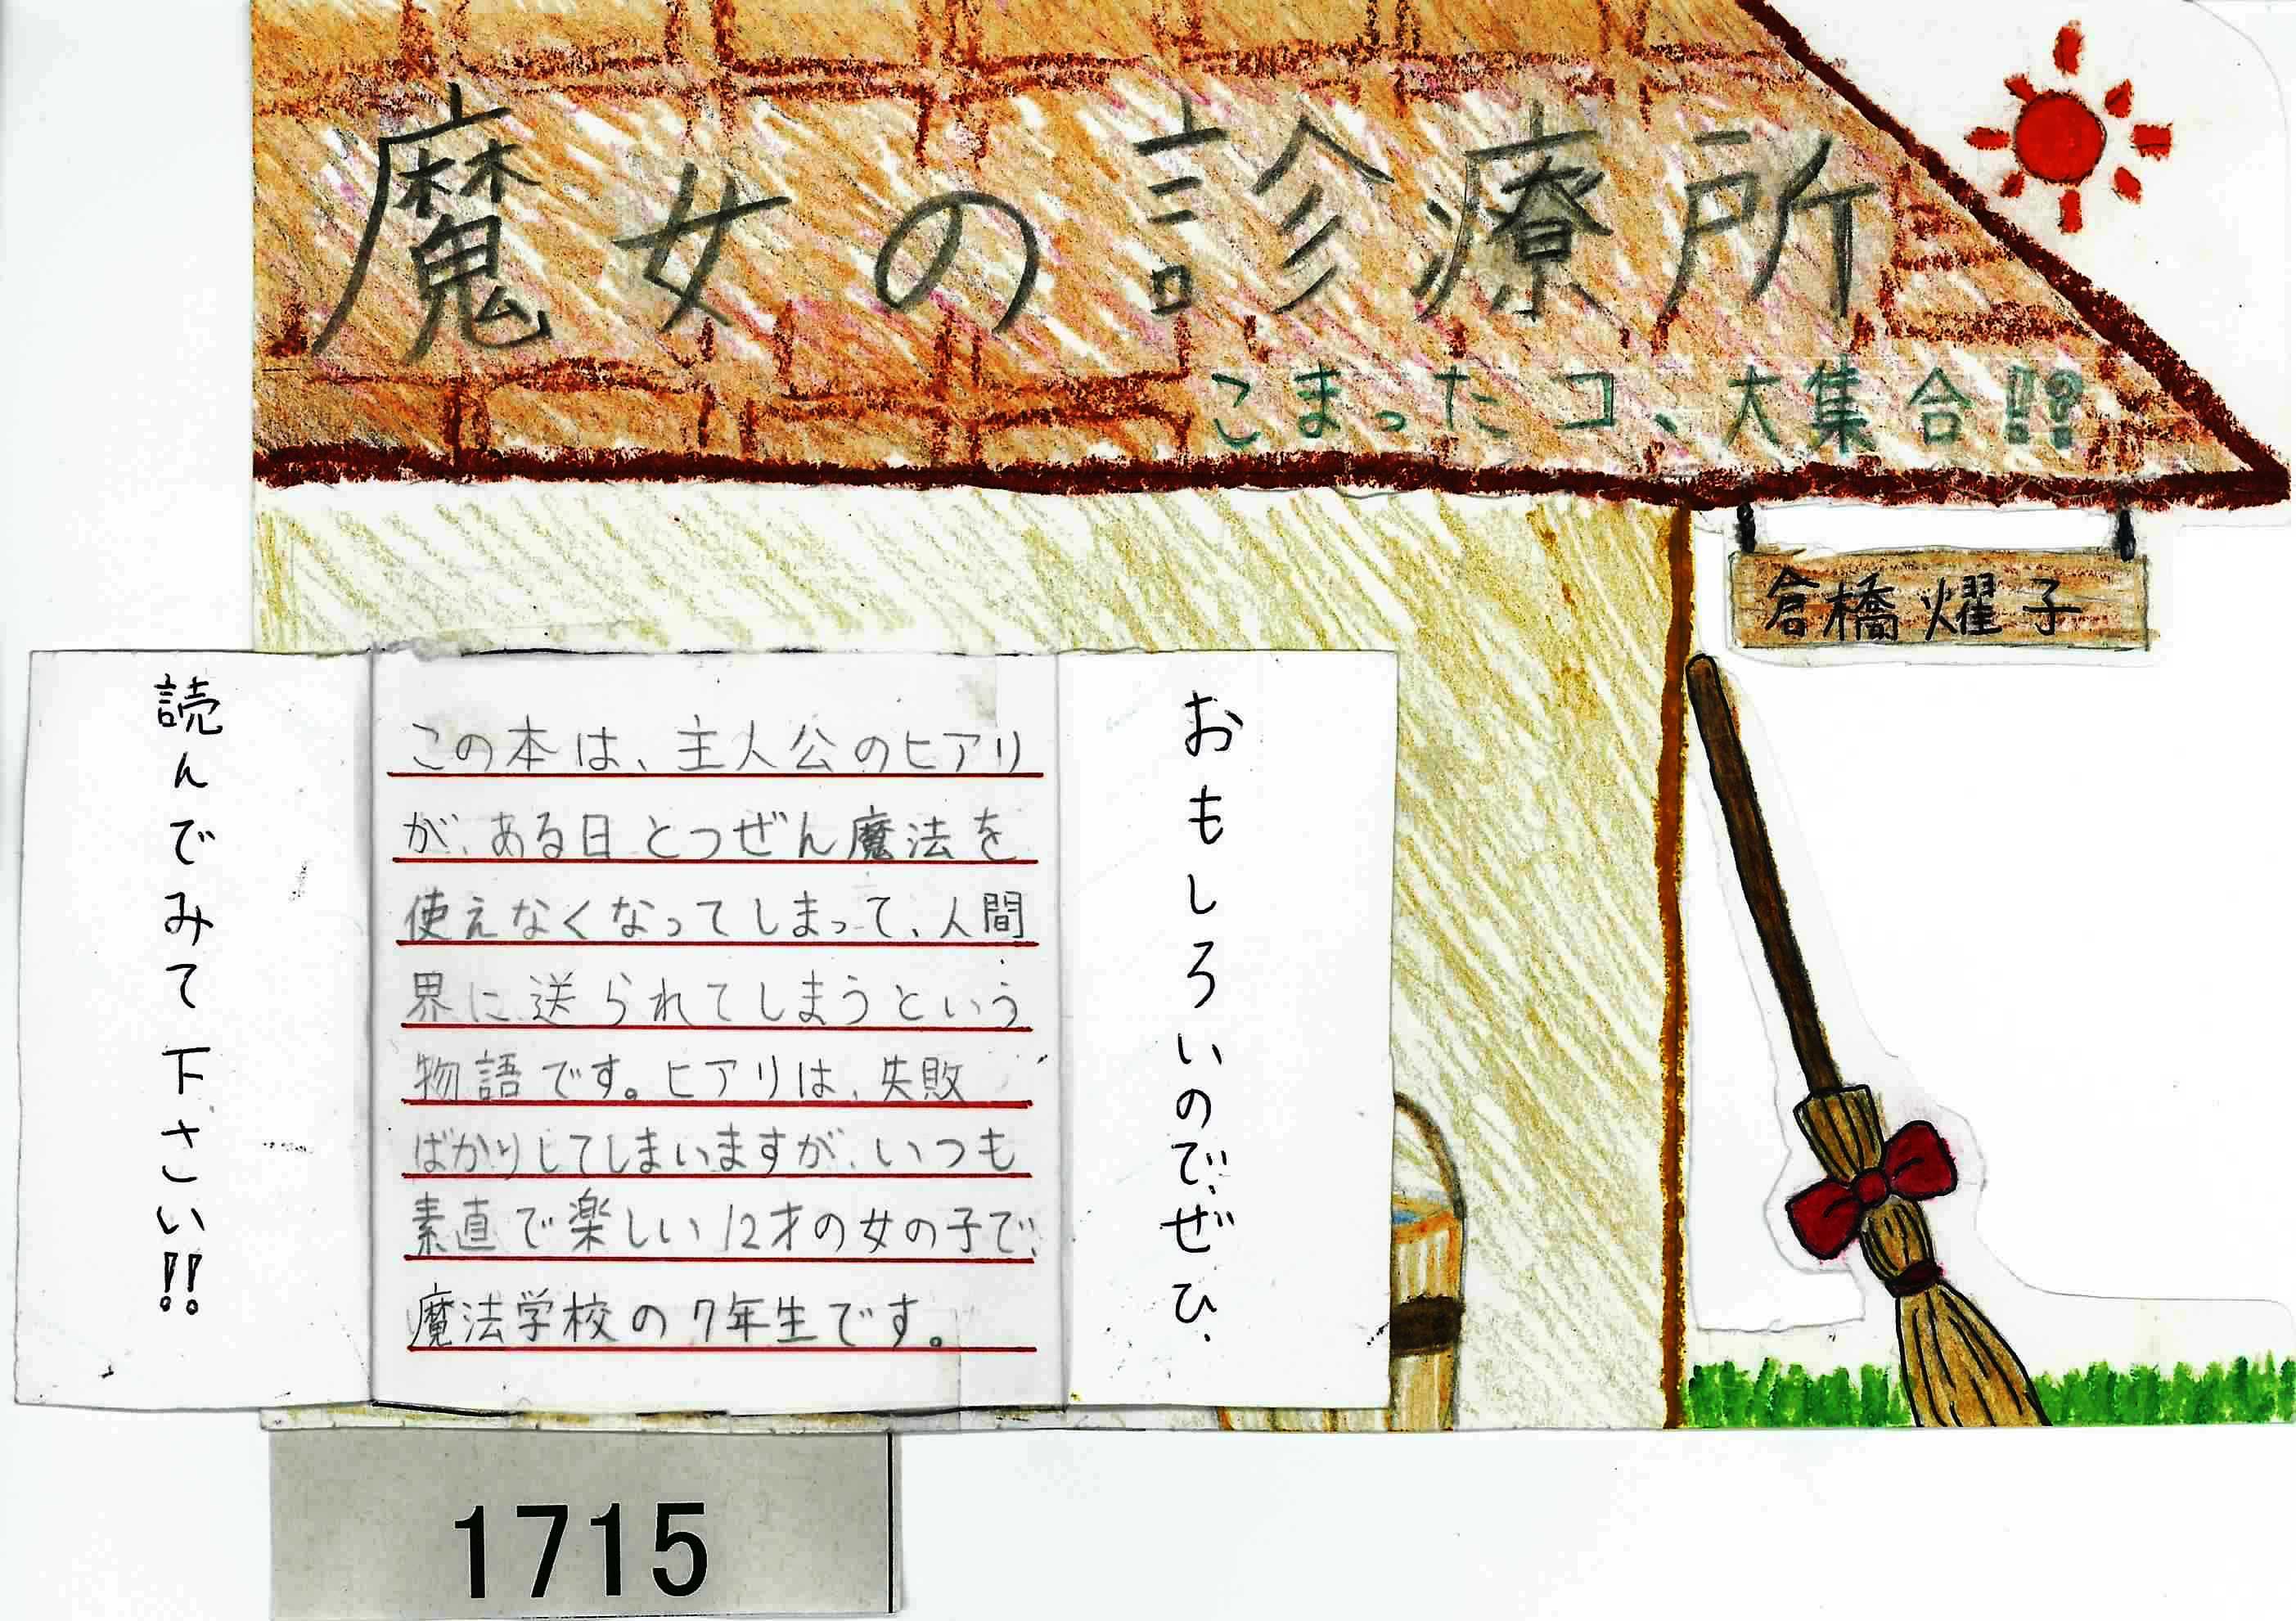 魔女の診療所
こまったコ、大集合!!?
倉橋燿子
おもしろいのでぜひ、
この本は、主人公のヒアリ
が、ある日とつぜん魔法を
使えなくなってしまって、人間
界に送られてしまうという
物語です。ヒアリは、失敗
ばかりしてしまいますが、いつも
素直で楽しい12才の女の子で、
魔法学校の7年生です。
読んでみて下さい!!
1715